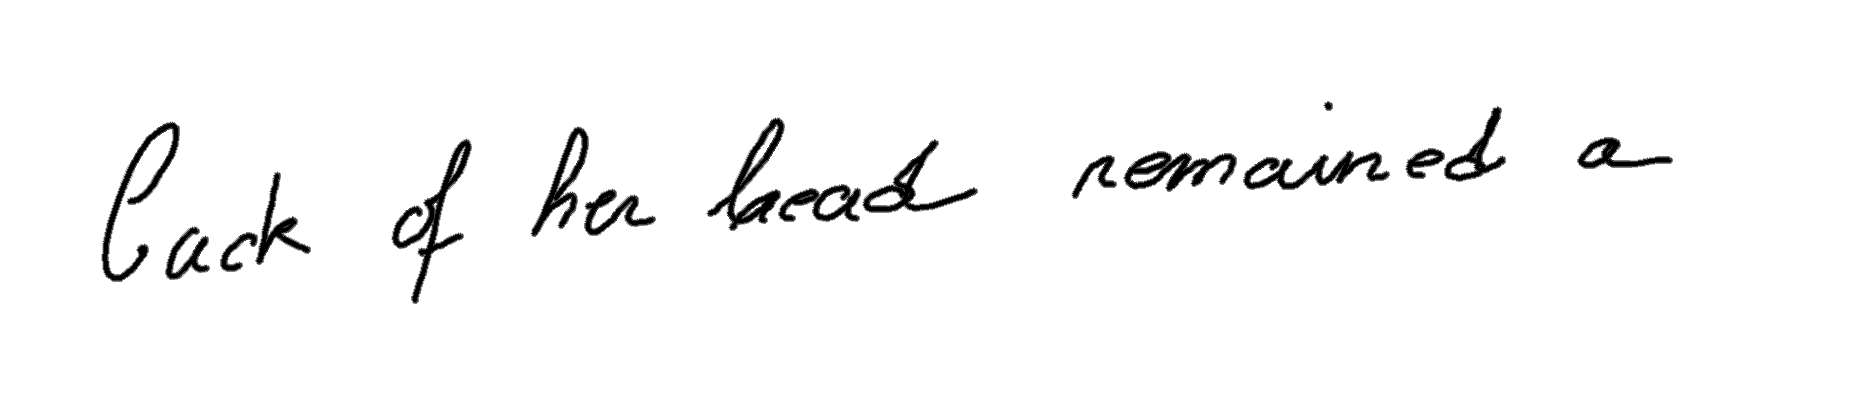 back of her head remained a